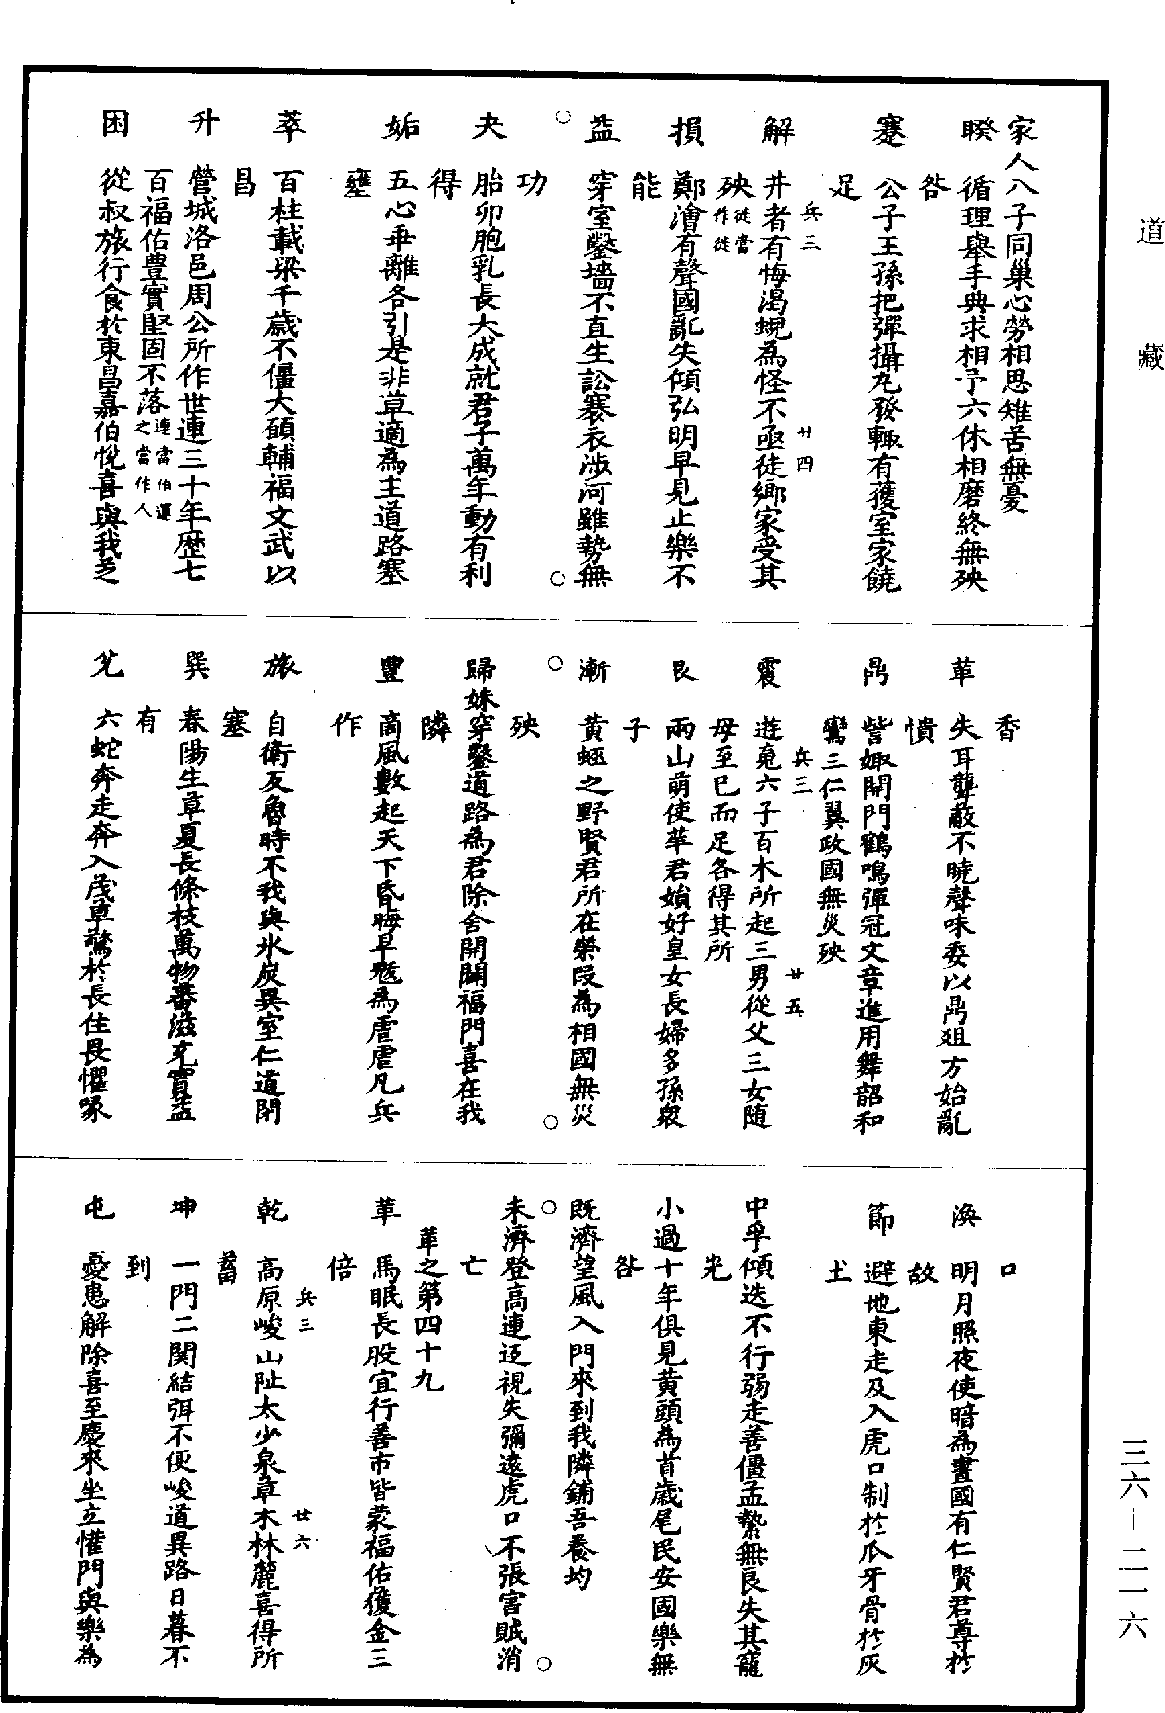 道藏
家人八子同巢心勞相思雉苦無憂
睽　循理舉手典求相予六休相磨終無殃
咎
蹇　公子王孫把彈攝丸發輙有獲室家饒
足
兵三　廿四
解　井者有悔渴蜺為怪不亟徒鄉家受其
殃徒當作徙
損　鄭澮有聲國亂失傾弘明早見止樂不
能
益　穿室鑿墻不直生訟褰衣涉河雖勢無
功
夬　胎卵胞乳長大成就君子萬年動有利
得
姤　五心乖離各引是非草適為主道路塞
壅
萃　百柱載梁千歲不僵大碩輔福文武以
昌
升　營城洛邑周公所作世連三十年歷七
百福佑豊實堅固不落連當伯運之當作人
困　從叔旅行食於東昌嘉伯悅喜與我芝
香
革　失耳聾蔽不曉聲味委以鼎爼方始亂
憒
鼎　訾娵開門鶴鳴彈冠文章進用舞韶和
鸞三仁翼政國無災殃
兵三　廿五
震　遊䰟六子百木所起三男從父三女随
母至已而足各得其所
艮　兩山萌使莘君媍好皇女長婦多孫衆
子
漸　黃蛵之野賢君所在榮叚為相國無災
殃
歸妹穿鑿道路為君除舍開闢福門喜在我
隣
豐　商風數起天下昏晦旱魃為虐虐凡兵
作
旅　自衛反魯時不我與氷炭異室仁道閉
塞
巽　春陽生草夏長條枝萬物蕃滋充實益
有
兊　六蛇奔走奔入茂草驚於長住畏懼啄
口
渙　明月照夜使暗為晝國有仁賢君尊於
故
節　避地東走及入虎口制於爪牙骨於灰
土
中孚傾迭不行弱走善僵孟縶無良失其寵
光
小過十年俱見黃頭為首歲尾民安國樂無
咎
既濟望風入門來到我隣鋪吾養均
未濟登高連迓視失彌遠虎口不張害賊消
亡
革之第四十九
革　馬眠長股宜行善市皆蒙福佑獲金三
倍
兵三　廿六
乾　高原峻山阯太少泉草木林麓喜得所
蓄
坤　一門二関結弭不便峻道異路日暮不
到
屯　憂患解除喜至慶來坐立懽門與樂為
三六—二一六